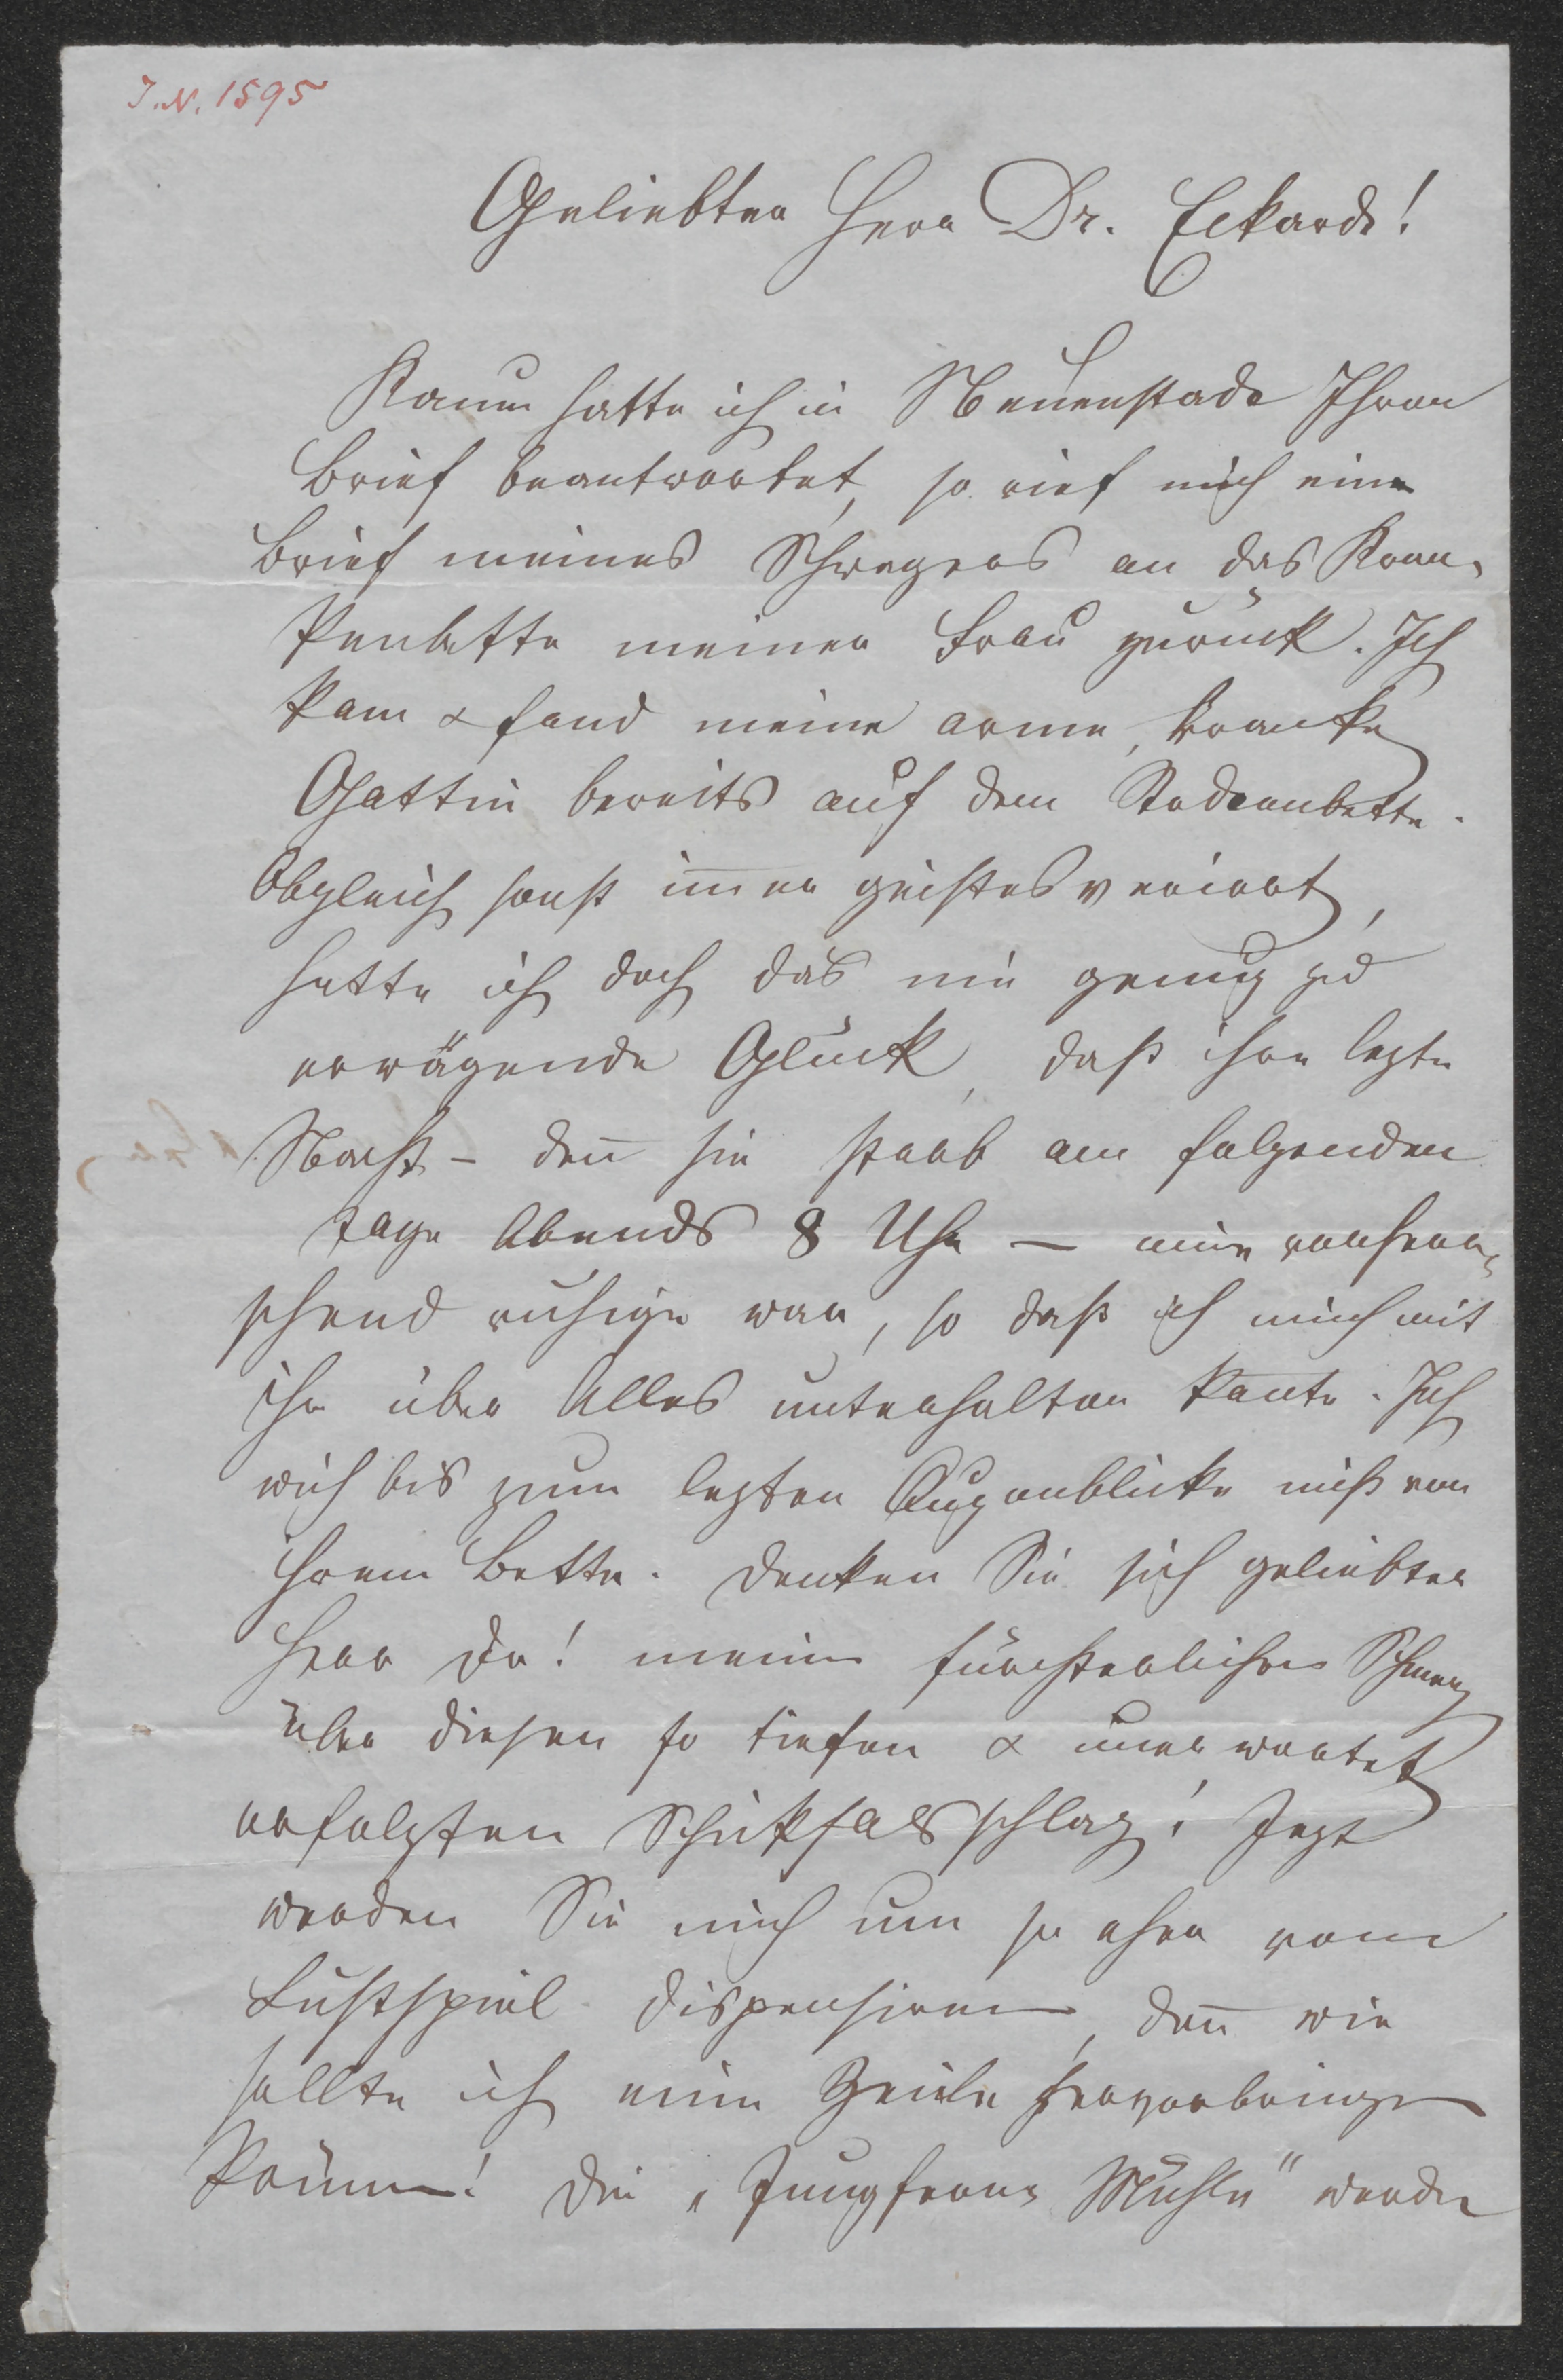 J. N. 1595
Geliebter Herr Dr. Eckardt!
Kaum hatte ich in Neuenstadt Ihren
Brief beantwortet, so rief mich ein
Brief meines Schwagers an das Kran-
kenbette meiner Frau zurück. Ich
kam & fand meine arme, kranke
Gattin bereits auf dem Todtenbette.
Obgleich sonst im̄er geistesverirrt,
hatte ich doch das nie genug zu
erwägende Glück, daß ihre lezte
Nacht – den̄ sie starb am folgenden
Tage Abends 8 Uhr — eine vorherr-
schend ruhige war, so daß ich mich mit
ihr über Alles unterhalten kon̄te. Ich
wich bis zum lezten Augenblicke nicht von
ihrem Bette. Denken Sie sich geliebter
Herr Dr! meinen fürchterlichen Schmerz
über diesen so tiefen & unerwartet
erfolgten Schicksalsschlag! Jezt
werden Sie mich um so eher vom
Lustspiel dispensiren, den̄ wie
sollte ich eine Zeile hervorbringen
kön̄en! Die „Jungfrauen Mühle" werde